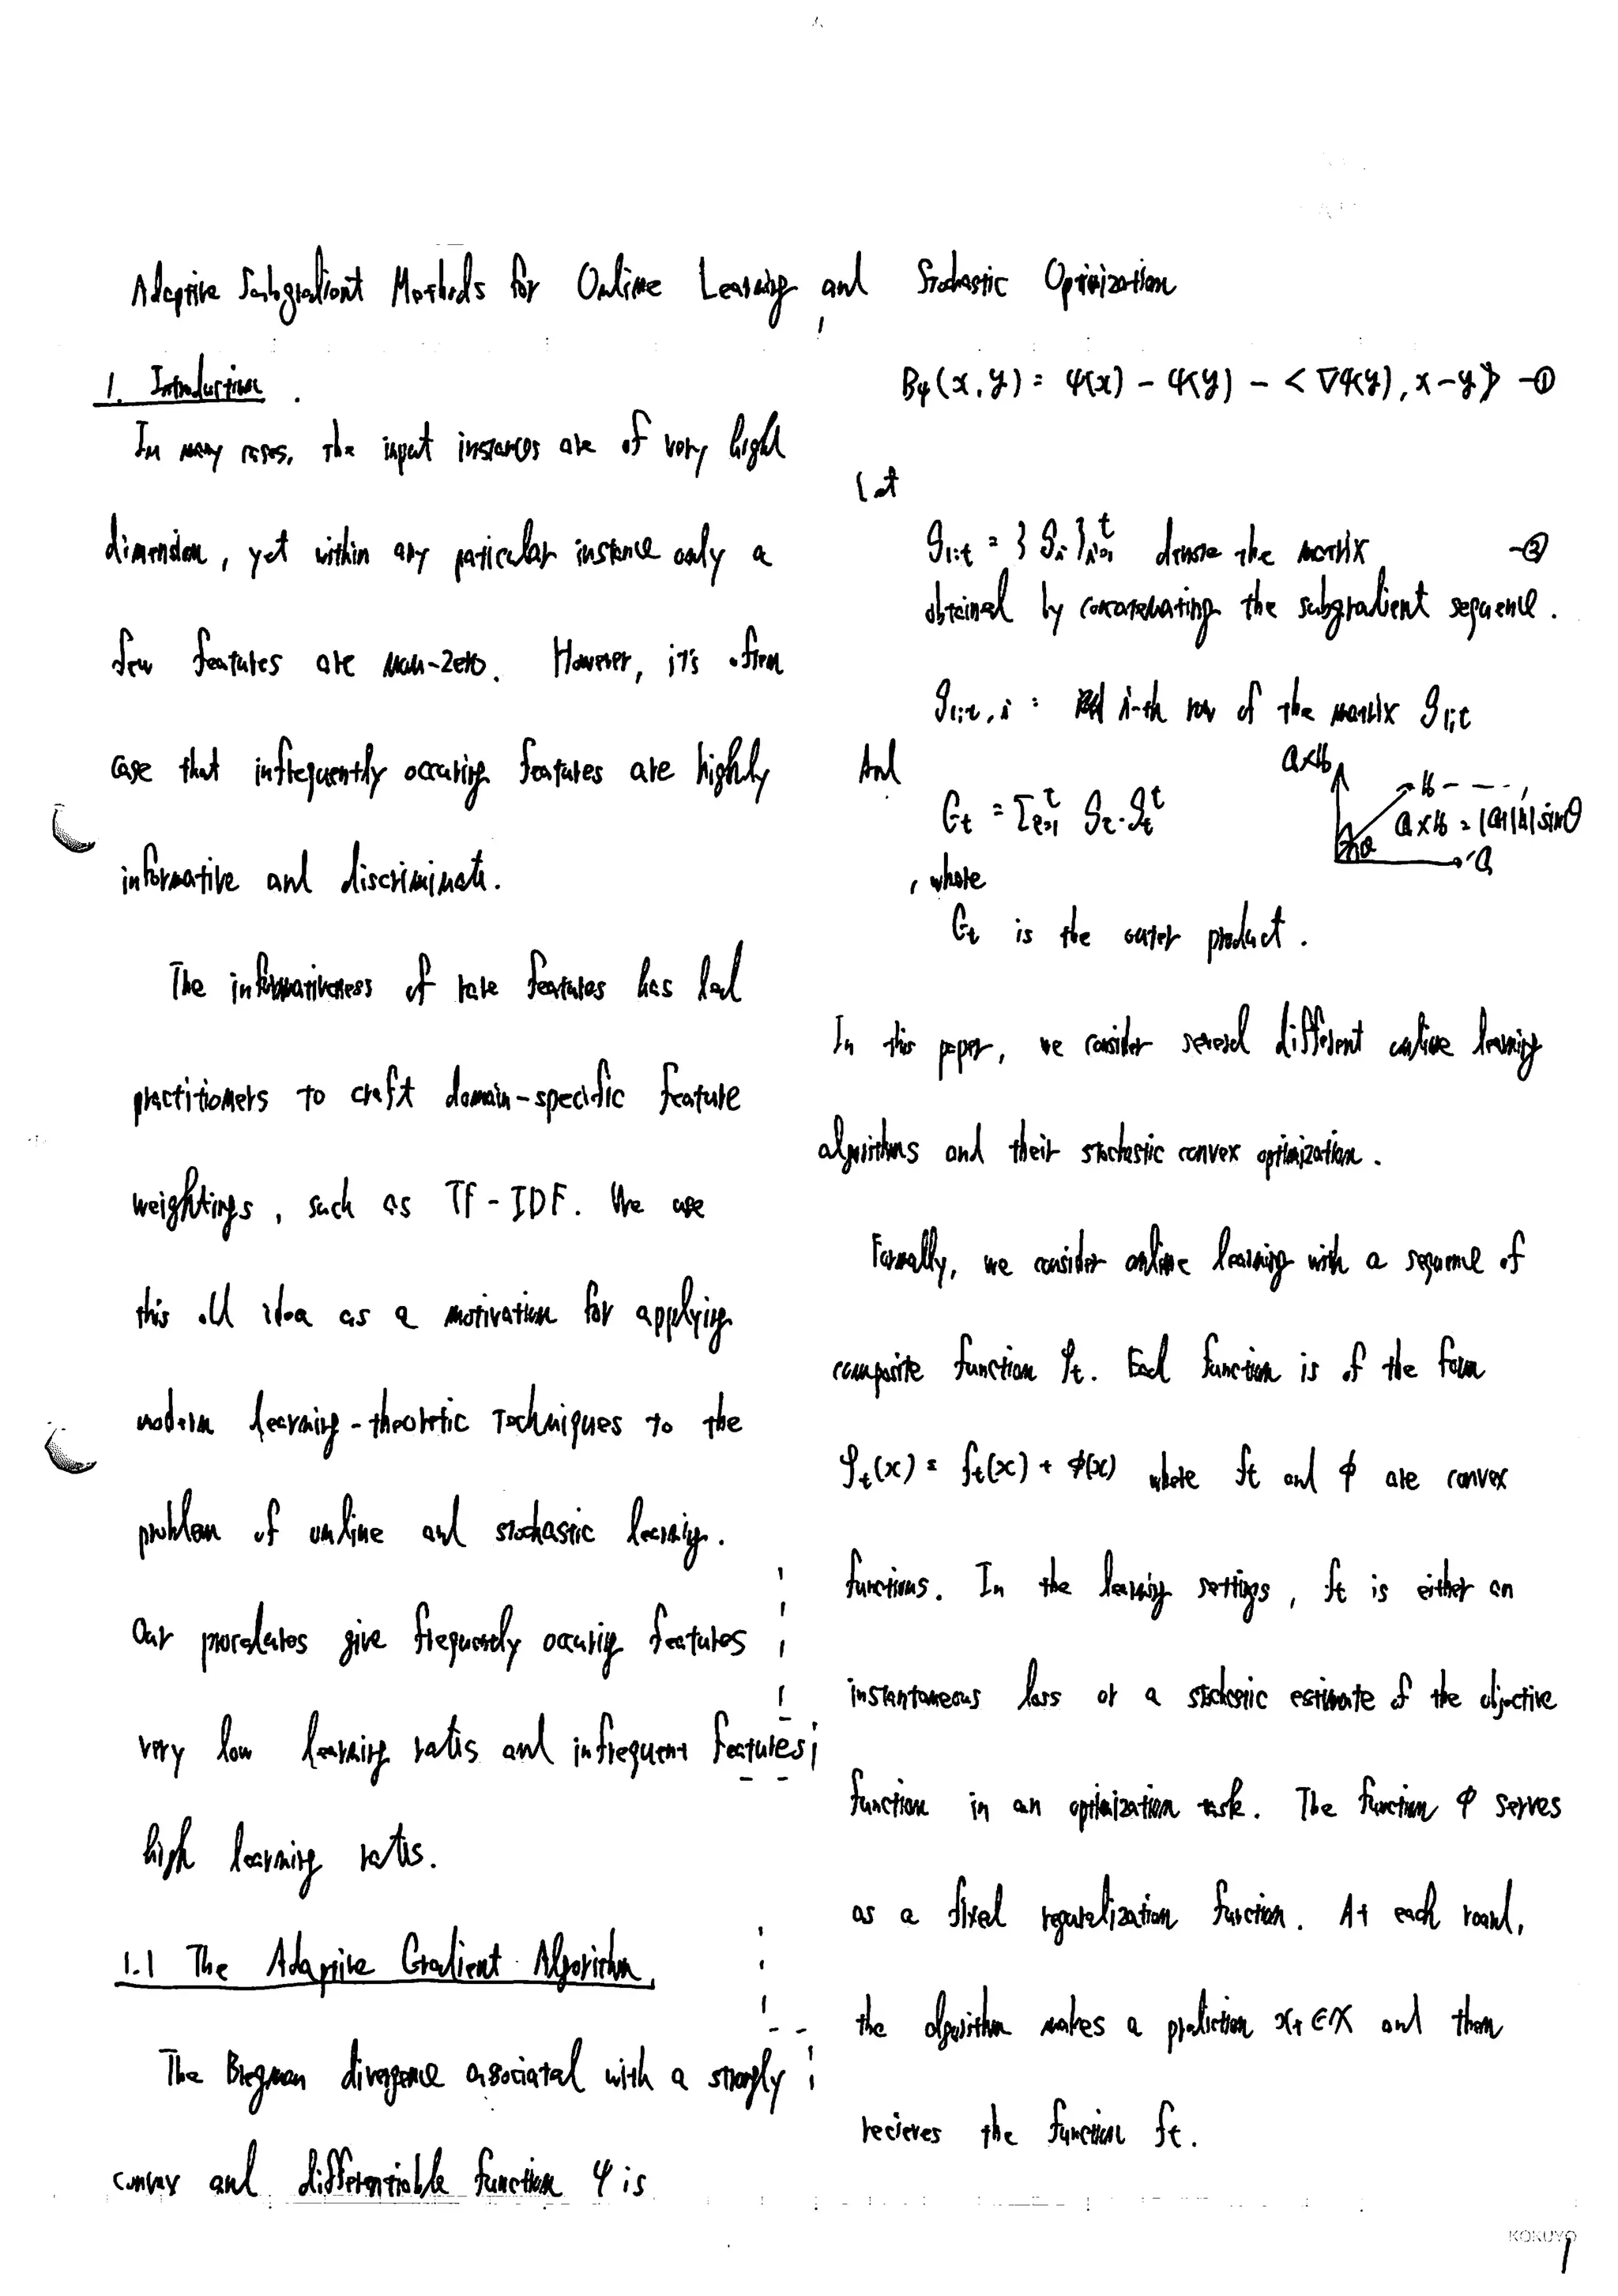 Adaptive Subgradient Methods for Online Learning and Stochastic Optimization
1. Introduction.
In many cases, the input instances are of very high
dimension, yet within any paticular instance only a
few features are non-zero. However, it's often
case that infrequently occuring features are highly
informative and discriminate.
The informativeness of rare features has led
practitioners to craft domain-specific feature
weightings, such as TF-IDF. We use
this old idea as a motivation for applying
modern learning-theoretic techniques to the
problem of online and stochastic learning.
Our procedures give frequently occuring features
very low learning rates and infrequent features
high learning rates.
1.1 The Adaptive Gradient Algorithm
The Bregman divergence associated with a strongly
convex and differentiable function ψ is
Bψ(x, y) = ψ(x) - ψ(y) - <∇ψ(y), x-y> -①
Let
g1:t = {gi}i=1^t denote the matrix -②
obtained by concatenating the subgradient sequence.
g1:t,i : i-th row of the matrix g1:t
And
Gt = Σ τ=1^t gτ·gτ^t
, where
Gt is the outer product.
a×b
b
a×b = |a||b|sinθ
θ
a
In this paper, we consider several different online learning
algorithms and their stochastic convex optimization.
Formally, we consider online learning with a sequence of
composite function φt. Each function is of the form
φt(x) = ft(x) + φ(x) where ft and φ are convex
functions. In the learning settings, ft is either an
instantaneous loss or a stochastic estimate of the objective
function in an optimization task. The function φ serves
as a fixed regularization function. At each round,
the algorithm makes a prediction xt ∈ X and then
recieves the function ft.
KOKUYO
1